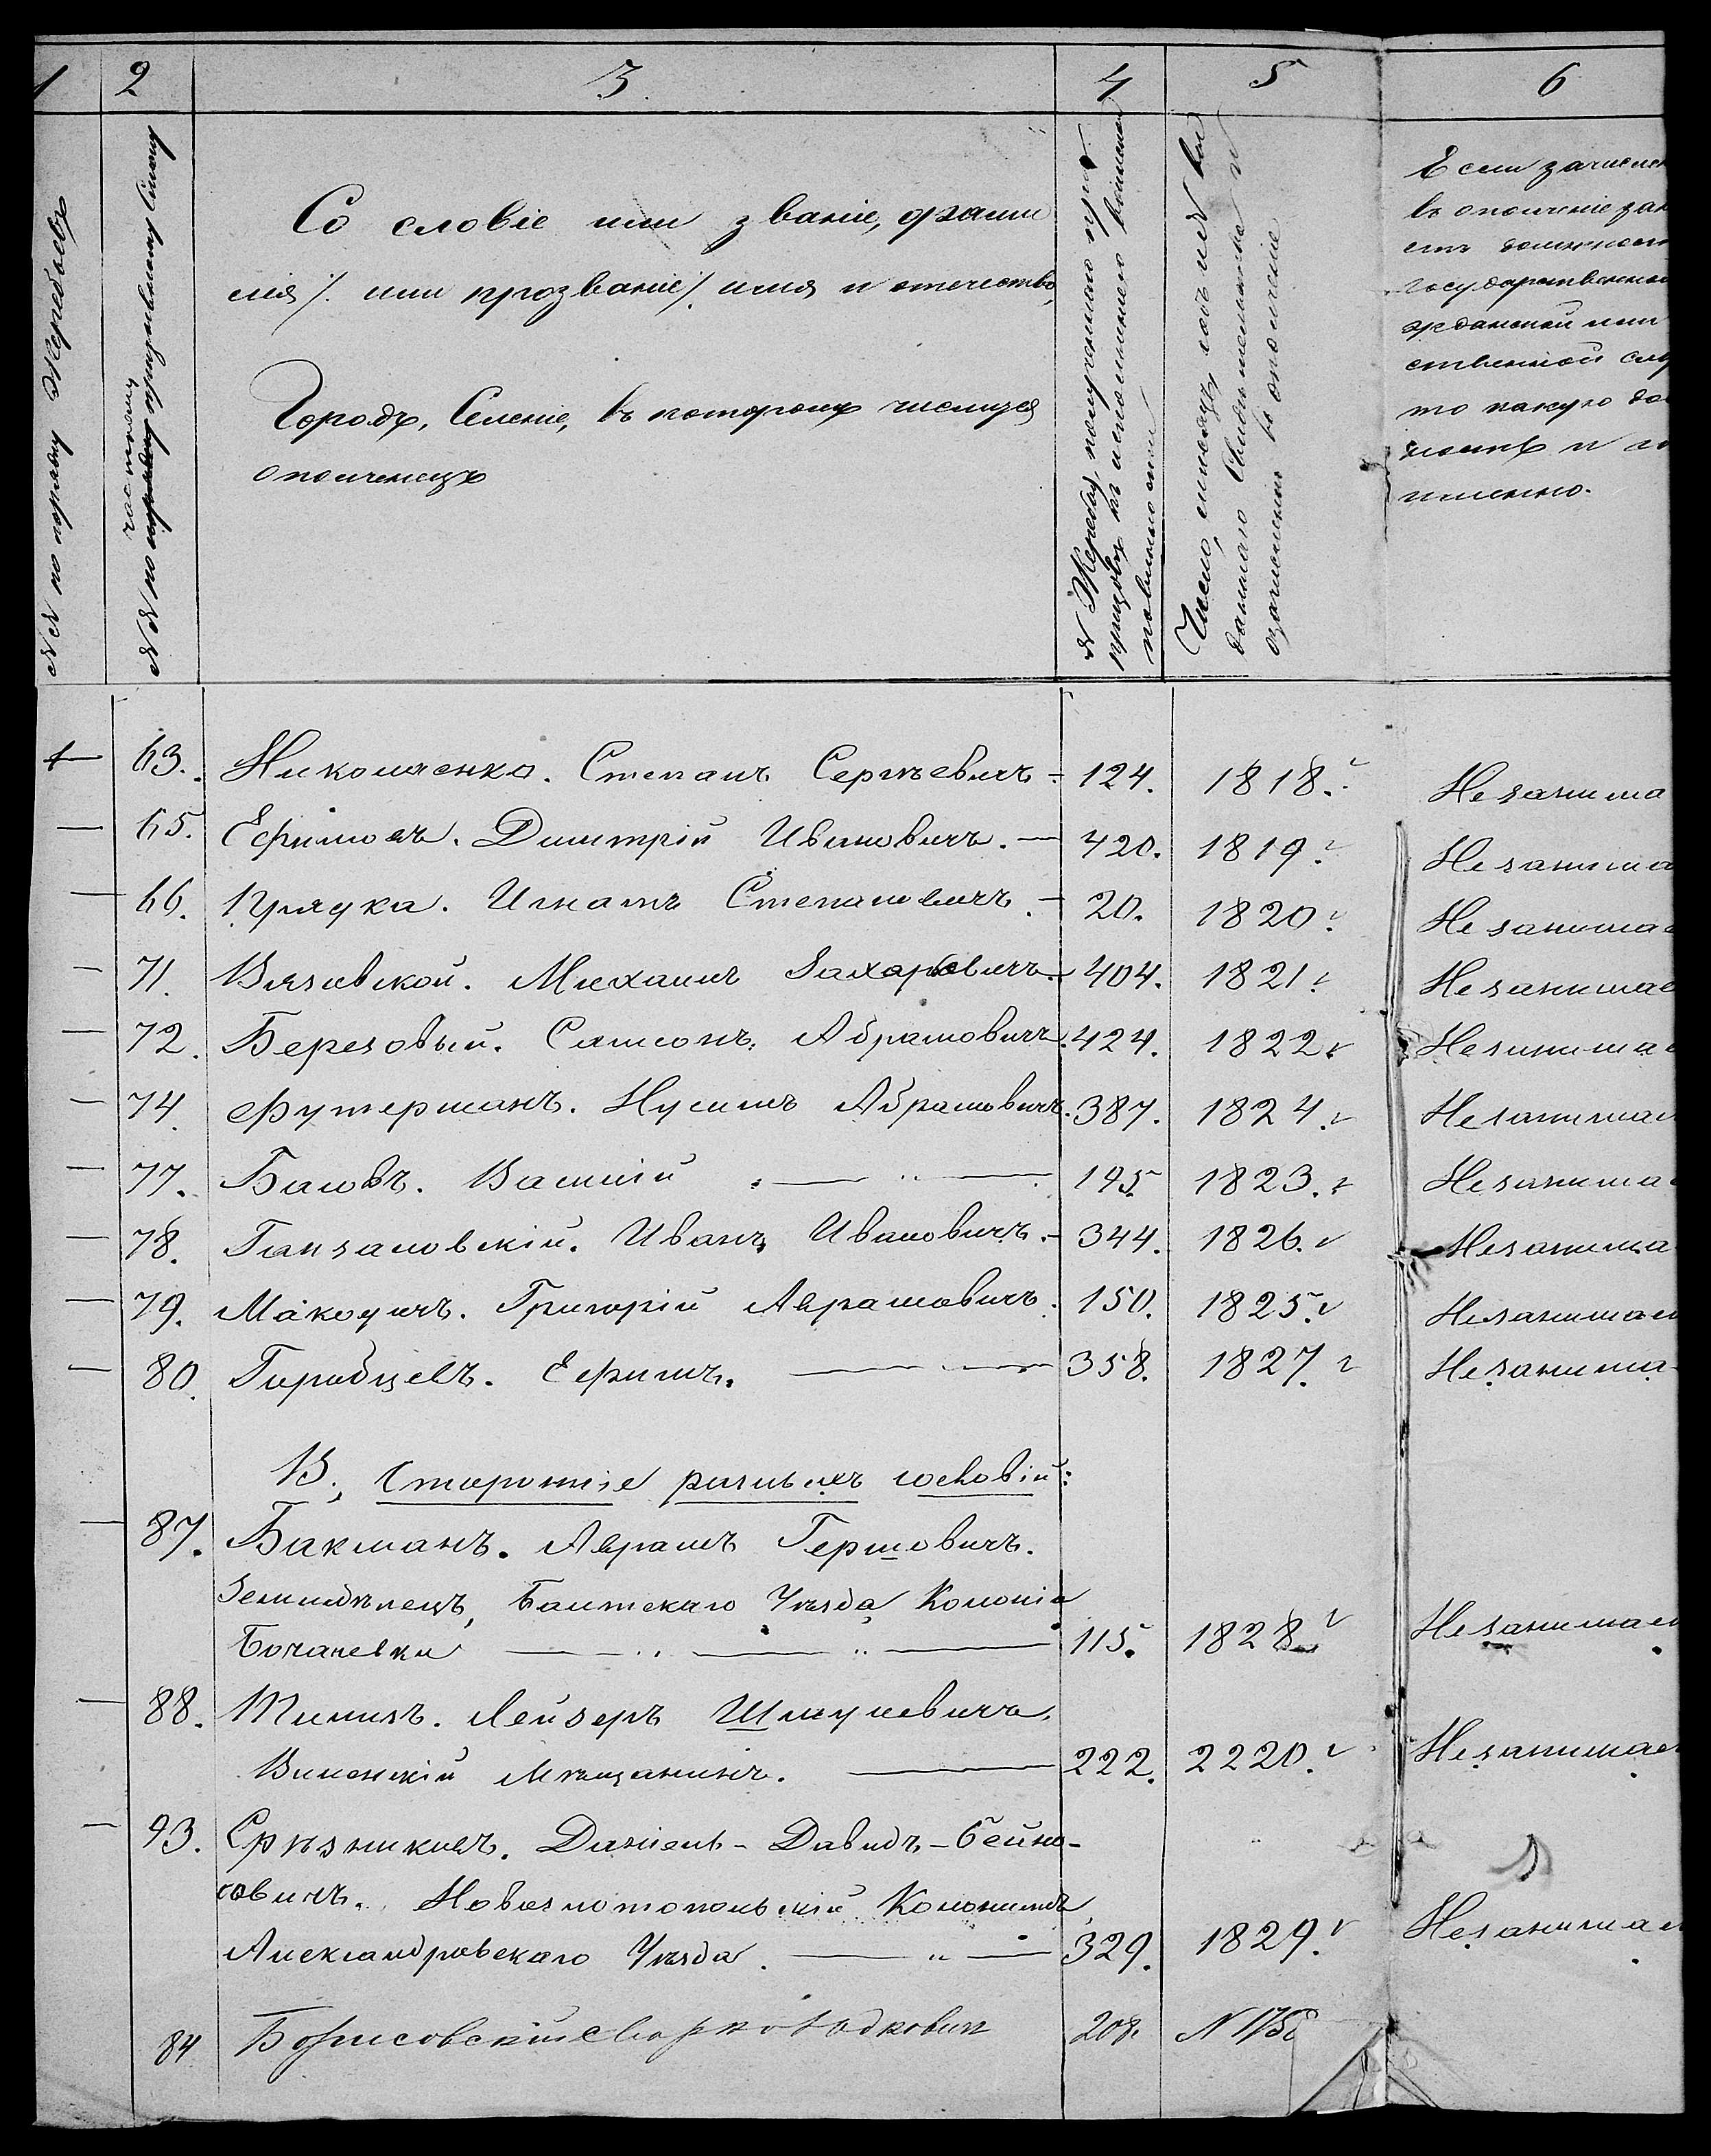 1 2 3 4 5 6
№№ по порядку Жеребьевъ
№№ по частному призывному списку
Сословіе или званіе, фами
лія /. или прозваніе/. имя и отечество,
Городъ, Селеніе, въ которомъ числится
ополченецъ
№ Жеребья, полученнаго при
призывѣ къ исполненію воинской
повинности
Число, мѣсяцъ, годъ и № вы
даннаго Свидѣтельства о
зачисленіи въ ополченіе
Если зачислен
въ ополченіе зан
етъ должност
государственной
жданской или
ственной слу
то какую дол
ность и
именно.
1 63. Николаенко. Степанъ Сергѣевичъ. 124. 1818. Не занима
65. Ефимовъ. Димитрій Ивановичъ. 420. 1819. Не занима
66. Игнатъ Степановичъ. 20. 1820. Не занимае
71. Вязовской. Михаилъ Захаровичъ. 404. 1821. Не занимае
72. Березовый. Самсонъ. Абрамовичъ. 424. 1822. Не занимае
74. Футерманъ. Нусимъ Абрамовичъ. 387. 1824. Не занимае
77. Баловъ. Василій 195 1823. Не занимае
78. Ганзаловскій. Иванъ Ивановичъ. 344. 1826. Не занима
79. Макодичъ. Григорій Аврамовичъ. 150. 1825. Не занимает
80. Горобцевъ. Ефимъ. 358. 1827. Не занима
В, Сторонніе разныхъ сословій:
87. Бакманъ. Аврамъ Гершовичъ.
Земледѣлецъ, Балтскаго Уѣзда Колоніи
115. 1828. Не занимает
88. Лейзеръ Шмулевичъ,
Виленскій Мѣщанинъ. 222. 2220. Не занимает
93. Срѣзникивъ. Даніель-Давидъ-Бейно-
совичъ. Новозлотопольскій Колонистъ,
Александровскаго Уѣзда. 329. 1829. Не занимае
84 Борисовскій 208. N 1758